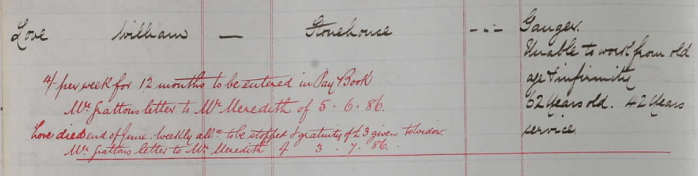 Love William — Stonehouse --- Ganger.
Unable to work from old
age & infirmity
62 Years old. 42 Years
service.
4/ per week for 12 months to be entered in Pay Book
Mr. Grattons letter to Mr. Meredith of 5.6.86.
Love died end of June. weekly alle. to be stopped & gratuity of £3 given to widow.
Mr. Grattons letter to Mr. Meredith of 3.7.86.